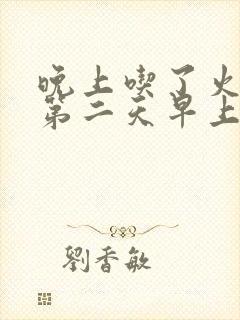 晚上喫了火
第二天早上
劉香敏